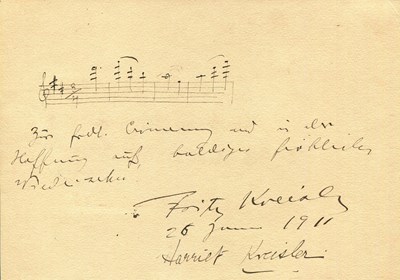 Zur frdl. Erinnerung und in der
Hoffnung auf baldiges fröhliches
Wiedersehn
Fritz Kreisler
26 Juni 1911
Harriet Kreisler